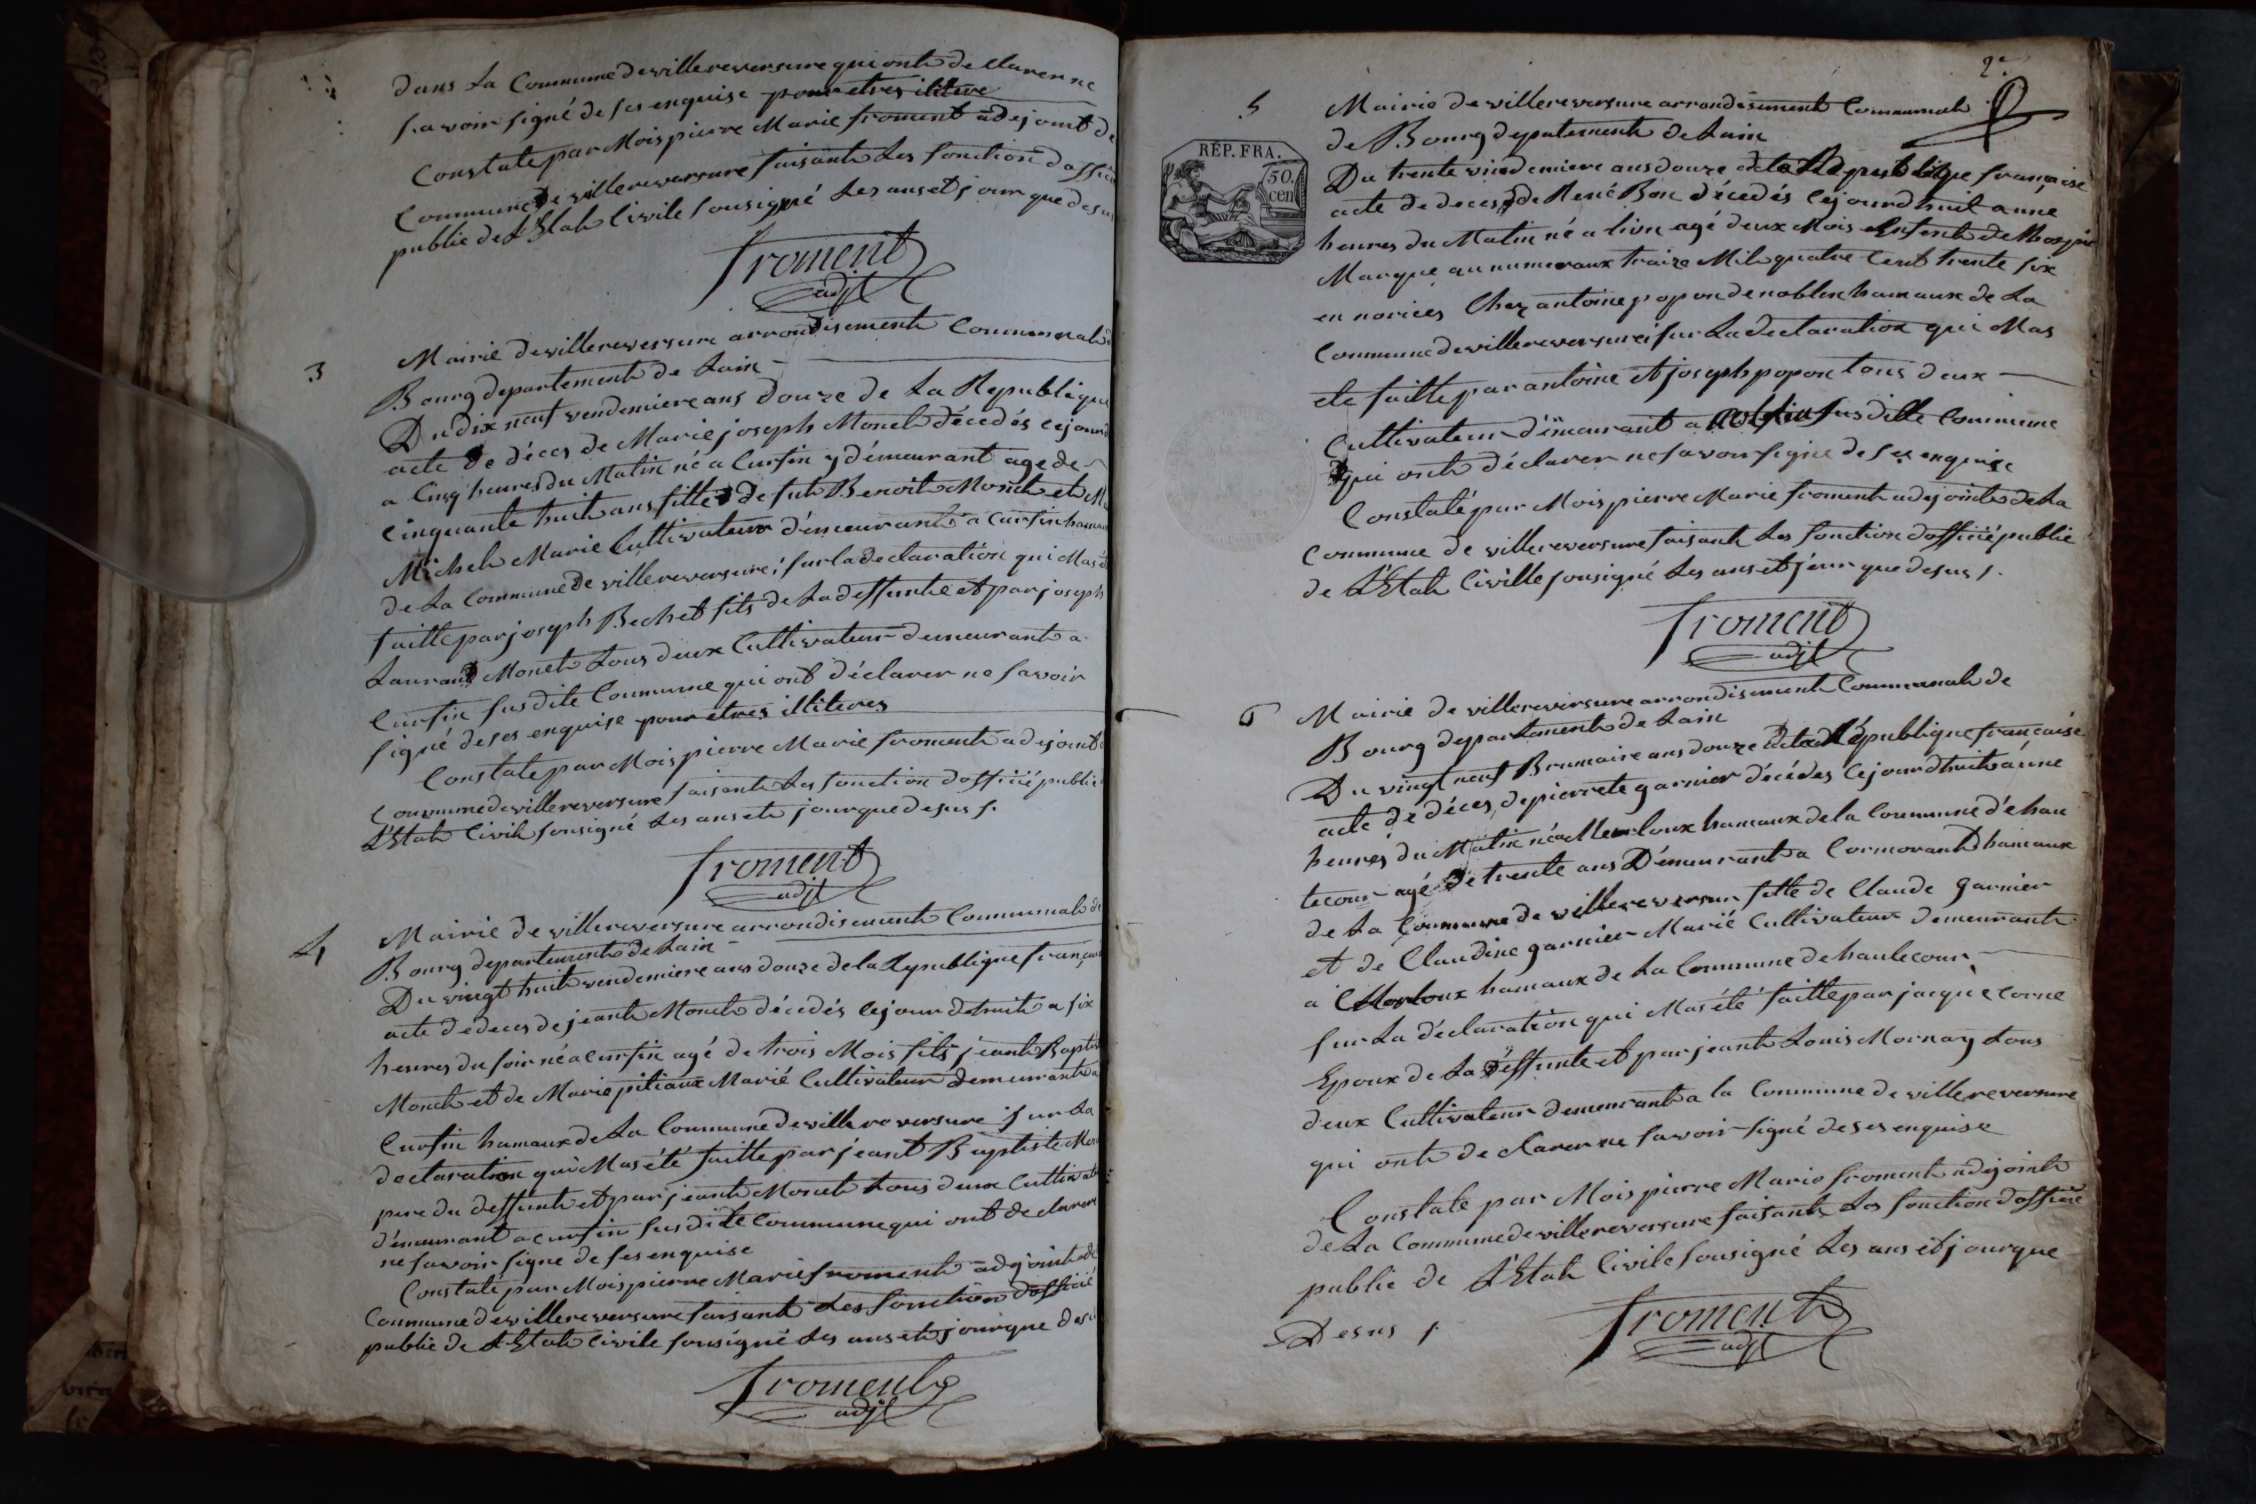 dans La Commune de villereversure qui onth de Clarer ne
savoir signé de ses enquise pour etres ilitere
Constate par Mois pierre Marie froment adejoint de
Commune de villereversure faisanth Les fonction d'offici
public de L'Etah Civile sousigné Les ans et jour que desus
froment
adjt
3
Mairie de villereversure arrondisementh Communalh d
Bourg departementh de Lain
Du dix neuf vendemiere ans douze de La Republique
acte de déces de Marie joseph Moneh décedés cejourd
a Cinq heures du Matin né a Curfin y démeurant age de
Cinquante huit ans fille de futh Benoit Moneth et M
Michel Marie Cultivateur démeuranth a Curfin hamau
de La Commune de villereversure; sur la declaration qui Mas é
faitte par joseph Bechet fils de La deffunte et par joseph
Laurand Moneth tous deux Cultivateur demeuranth a
Curfin susdite Commune qui ont déclarer ne savoir
signé de ses enquise pour etres illiteres
Constate par Mois pierre Marie fromenth adejoint
Commune de villereversure faisanth Les fonction d'officié public
L'Etah Civile sousigné Les ans eth jour que desus /.
froment
adjt
4
Mairie de villereversure arrondisementh Communalh de
Bourg departementh de Lain
Du vingt huit vendemiere ans douze de la Republique français
acte de deces de jeanth Moneh décédés cejourdhuith a six
heures du soir né a Curfin agé de trois Mois fils jeanth Baptist
Moneth et de Marie pitiaux Marié Cultivateur demeuranth a
Curfin hamaux de La Commune de villereversure; sur La
declaration qui Mas été faitte par jéant Baptiste Mon
pere du deffunth et par jeanth Moneth tous deux Cultivate
démeurant a Curfin susdite Commune qui ont declarer
ne savoir signe de ses enquise
Constaté par Mois pierre Marie froment adejointh de
Commune de villereversure faisant Les fonction d'officié
public de L'Etah Civile sousigné Les ans eth jour que des
froment
adjt
2e
5
REP. FRA.
50. cen
Mairie de villereversure arrondisementh Communalh
de Bourg departementh de Lain
Du trente vindemiere ans douze de La Republique française
acte de deces de René Bon décedés cejourdhuit a une
heures du Matin né a lion agé deux Mois Enfenth de lhospice
Marque au numeraux traize Mile quatre Cent trente six
en norices Chez antoine popon de noblen hamaux de La
Commune de villereversure; sur La declaration qui Mas
ete faitte par antoine et joseph popon tous deux
Cultivateur démeurant a susditte Commune
qui onth déclarer ne savoir signe de ses enquise
Constaté par Mois pierre Marie fromenth adejointh de La
Commune de villereversure faisanth Les fonction d'officié public
de L'Etah Civille sousigné Les ans et jour que desus /.
froment
adjt
6
Mairie de villereversure arrondisementh Communalh de
Bourg departementh de Lain
Du vingt neuf Brumaire ans douze de La République française
acte de déces de pierrete garnier décédes cejourdhuith a une
heures du Matin né a Merloux hamaux de la Commune d'éhau
tecour agé de trente ans Démeuranth a Cormorandh hamaux
de La Commune de villereversur fille de Claude garnier
et de Claudine garnier Marié Cultivateur demeuranth
a Merloux hamaux de La Commune de hautecour
sur La déclaration qui Mas été faitte par jacque Corne
Epoux de La déffunte et par jeanth Louis Mornay tous
deux Cultivateur demeuranth a la Commune de villereversure
qui onth de clarer ne savoir signé de ses enquise
Constaté par Mois pierre Marie fromenth adejointh
de La Commune de villereversure faisanth Les fonction d'officié
public de L'Etah Civile sousigné Les ans et jour que
Desus /
fromenth
adjt